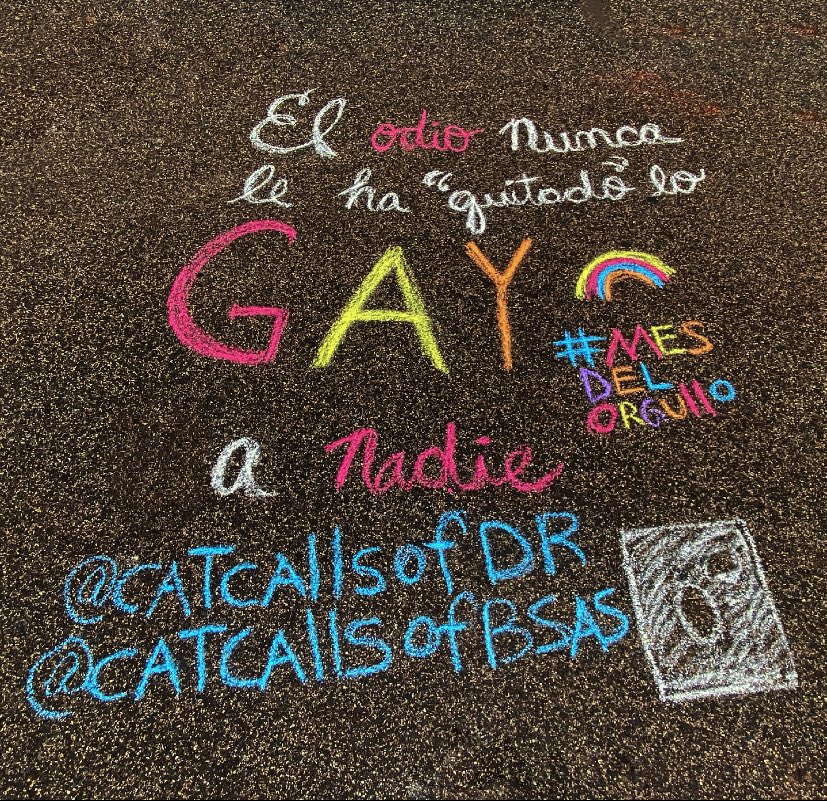 El odio nunca
le ha "quitado" lo
GAY
#MES
DEL
ORGULLO
a nadie
@CATCAllsofDR
@CATCAllSofBSAS